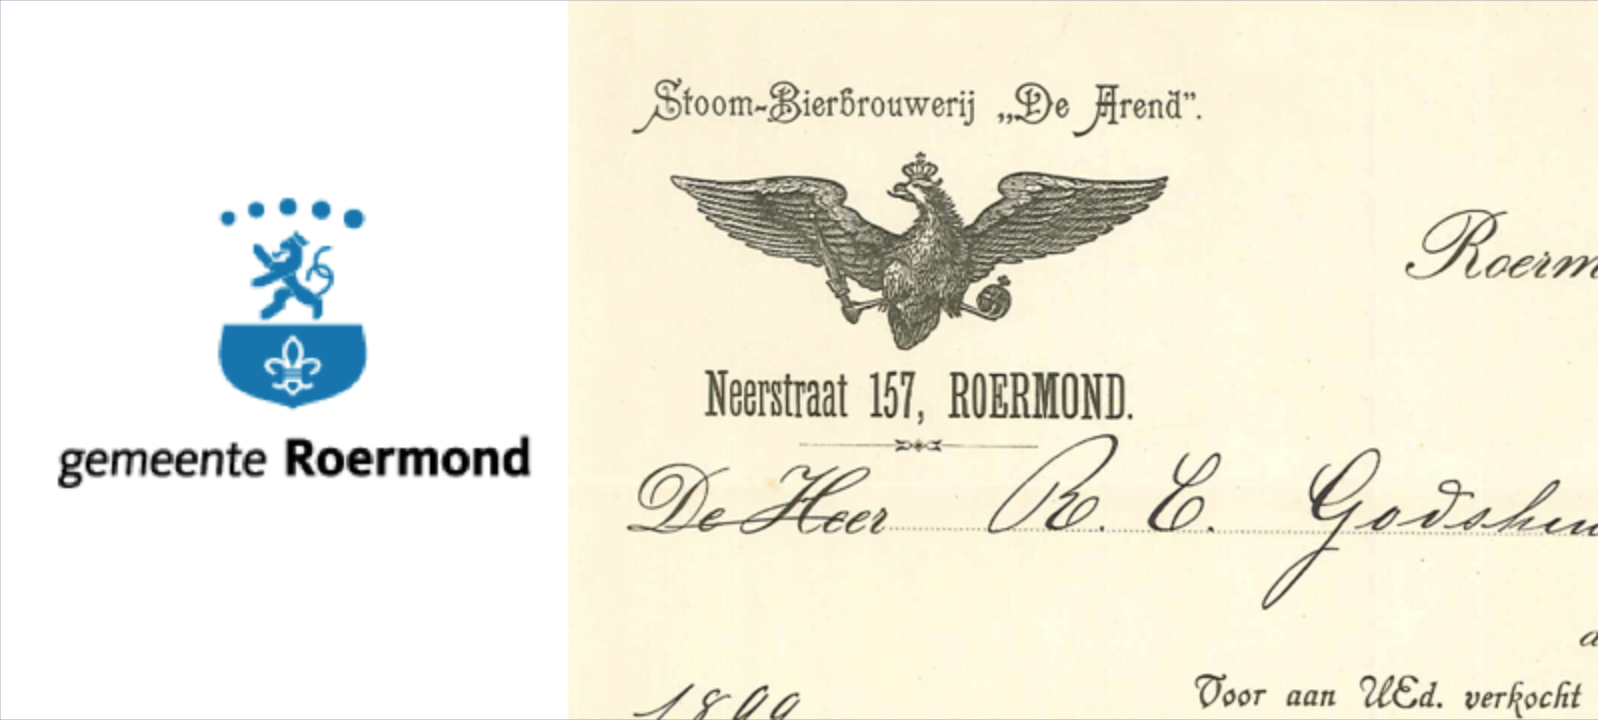 gemeente Roermond
Stoom-Bierbrouwerij „De Arend”.
Neerstraat 157, ROERMOND.
De Heer R. E.
1899
Voor aan UEd. verkocht